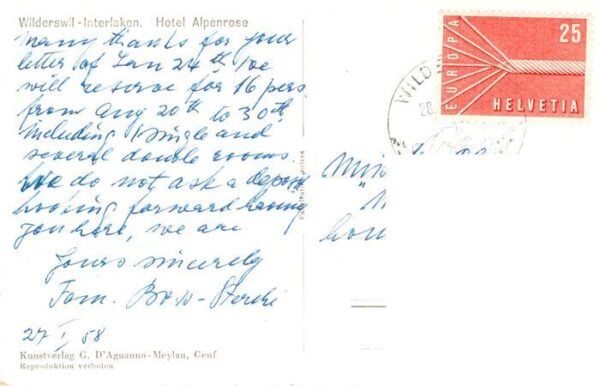 Wilderswil-Interlaken. Hotel Alpenrose
Many thanks for your
letter of Jan 24th, We
will reserve for 16 pers
from Aug 20th to 30th,
including 1 single and
several double rooms.
We do not ask a deposit
looking forward having
you here, we are
Yours sincerely
Fam.
27 I 58
Kunstverlag G. D'Aguanno-Meylan, Genf
Reproduktion verboten
EUROPA
25
HELVETIA
WILD
28.